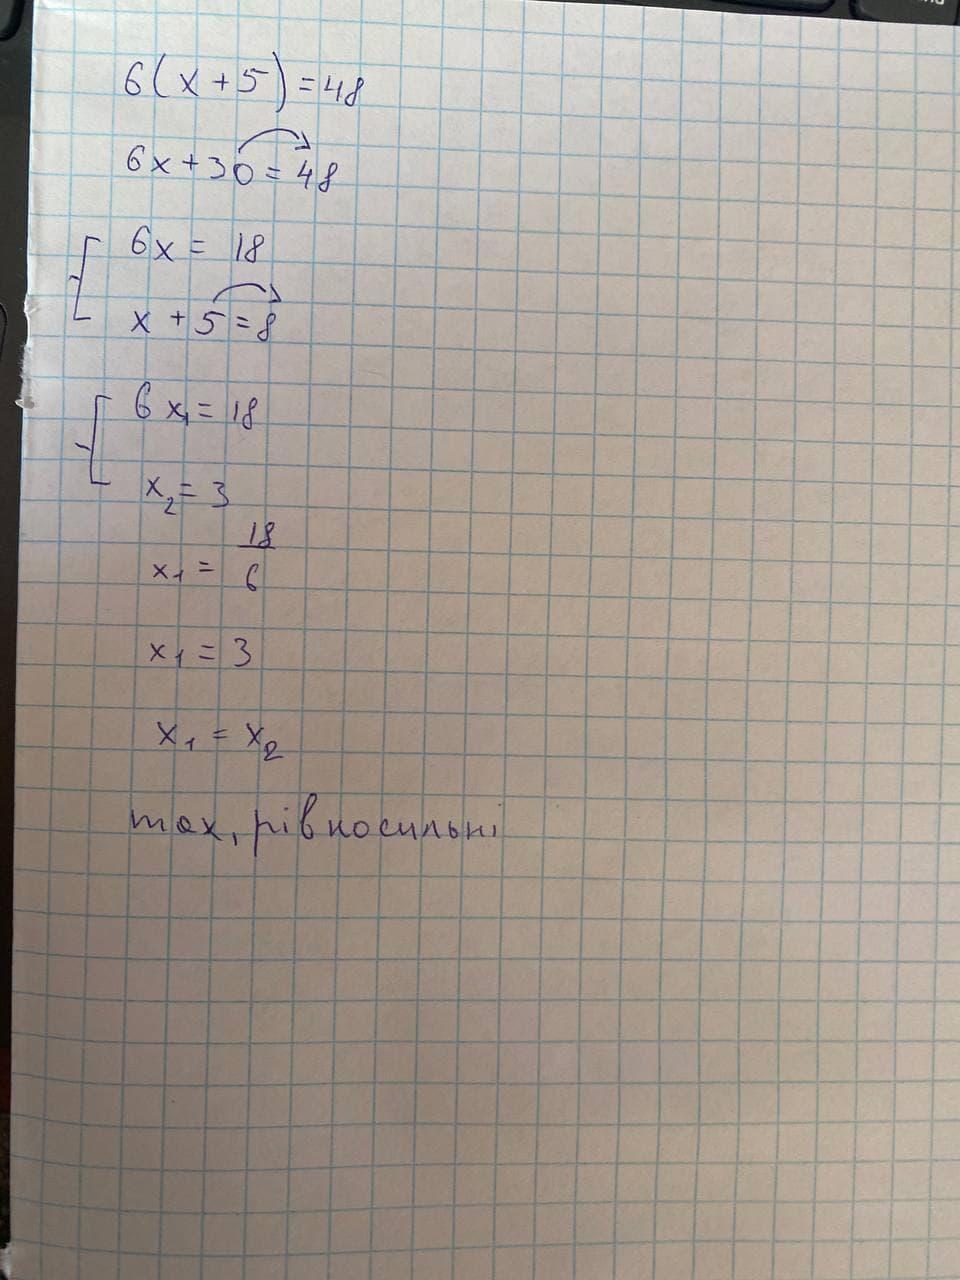 6(x+5)=48
6x+30=48
6x = 18
x+5=8
6x₁=18
x₂=3
x₁ = 18/6
x₁ = 3
x₁ = x₂
так, рівносильні